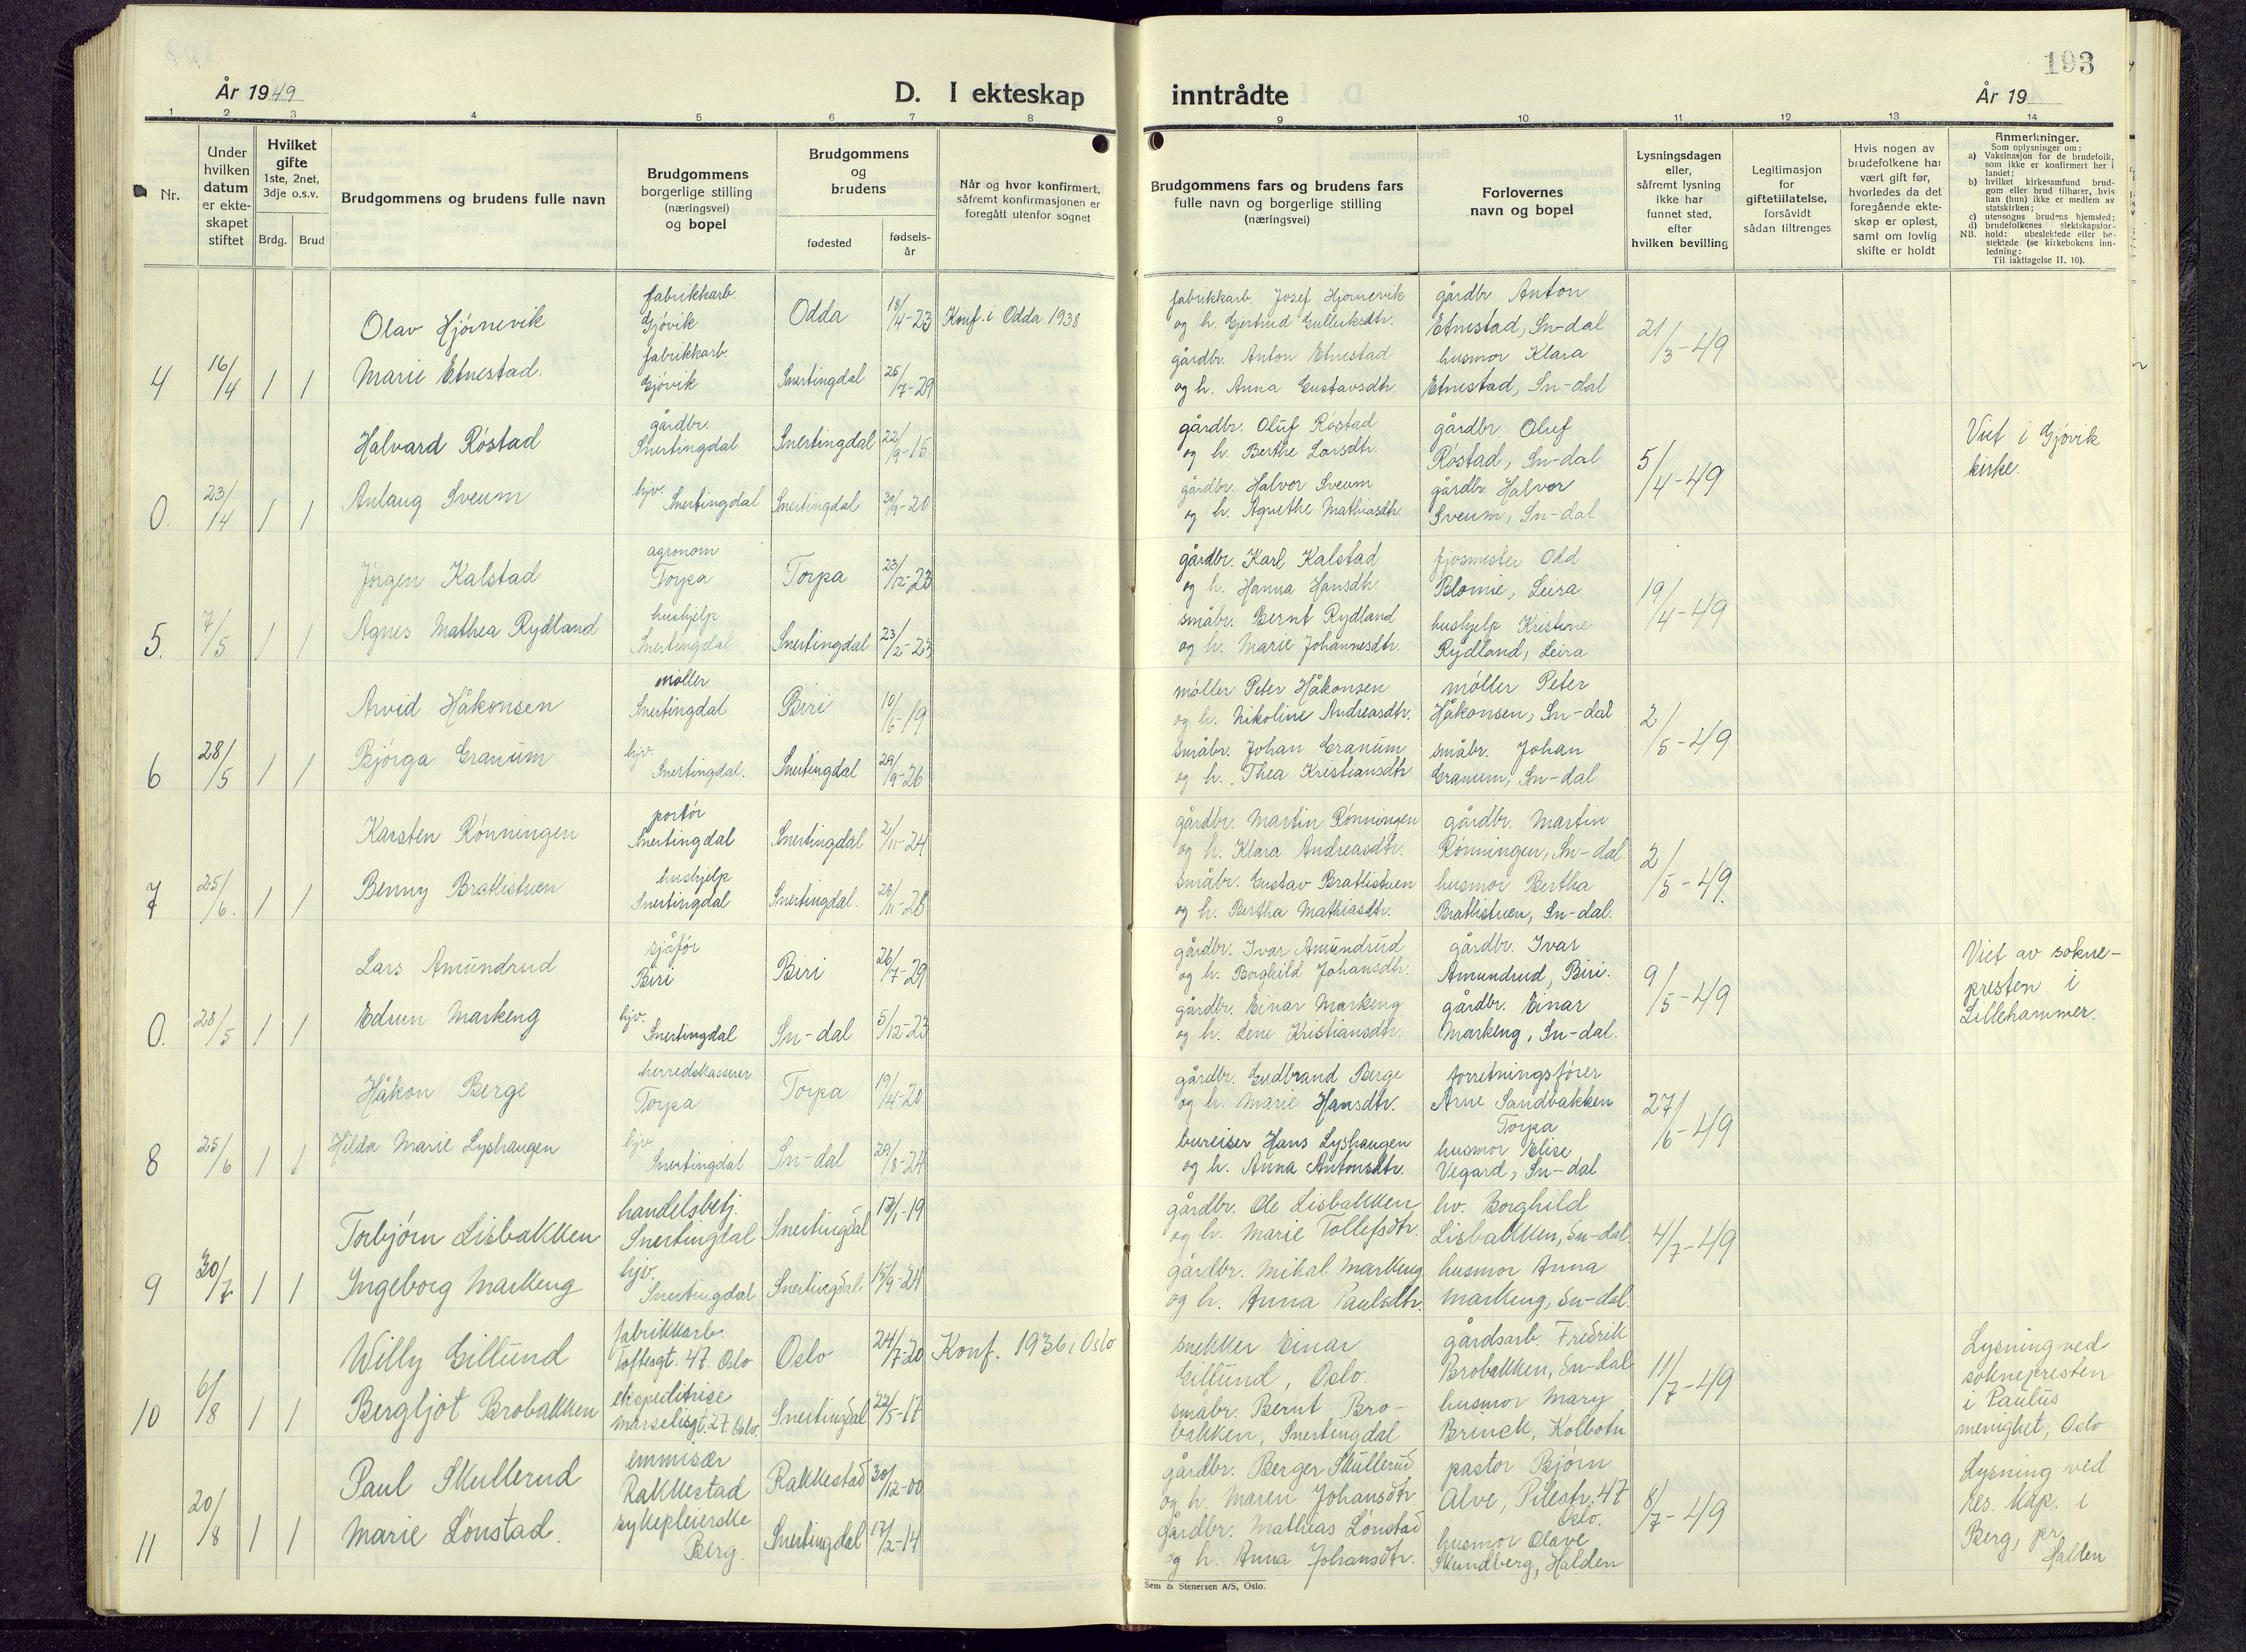 193
År 1949
D. I ekteskap
inntrådte
År 19
1 2 3 4 5 6 7 8 9 10 11 12 13 14
Nr.
Under
hvilken
datum
er ekte-
skapet
stiftet
Hvilket
gifte
1ste, 2net,
3dje o.s.v.
Brdg. Brud
Brudgommens og brudens fulle navn
Brudgommens
borgerlige stilling
(næringsvei)
og bopel
Brudgommens
og
brudens
fødested
fødsels-
år
Når og hvor konfirmert,
såfremt konfirmasjonen er
foregått utenfor sognet
Brudgommens fars og brudens fars
fulle navn og borgerlige stilling
(næringsvei)
Forlovernes
navn og bopel
Lysningsdagen
eller,
såfremt lysning
ikke har
funnet sted,
efter
hvilken bevilling
Legitimasjon
for
giftetillatelse,
forsåvidt
sådan tiltrenges
Hvis nogen av
brudefolkene har
vært gift før,
hvorledes da det
foregående ekte-
skap er opløst,
samt om lovlig
skifte er holdt
Anmerkninger.
Som oplysninger om:
a) Vaksinasjon for de brudefolk,
som ikke er konfirmert her i
landet;
b) hvilket kirkesamfund brud-
gom eller brud tilhører, hvis
han (hun) ikke er medlem av
statskirken;
c) utensogns brudens hjemsted;
d) brudefolkenes slektskapsfor-
NB. hold: ubeslektede eller be-
slektede (se kirkebokens inn-
ledning;
Til iakttagelse II. 10).
4
16/4
1 1
Olav Hjørnevik
Marie Etnestad.
fabrikkarb.
Gjövik
fabrikkarb.
Gjövik
Odda 18/4-23
Snertingdal 25/7-29
Konf. i Odda 1938
fabrikkarb. Josef Hjørnevik
og h. Gjertrud Gulleiksdtr.
gårdbr. Anton Etnestad
og h. Anna Gustavsdtr.
gårdbr. Anton
Etnestad, Sn-dal
husmor Klara
Etnestad, Sn-dal
21/3-49
0.
23/4
1 1
Halvard Röstad
Aslaug Sveum
gårdbr.
Snertingdal
hjv.
Snertingdal
Snertingdal 22/9-15
Snertingdal 30/9-20
gårdbr. Oluf Röstad
og h. Berthe Larsdtr.
gårdbr. Halvor Sveum
og h. Agnethe Mathiasdtr.
gårdbr. Oluf
Röstad, Sn-dal
gårdbr. Halvor
Sveum, Sn-dal
5/4-49
Viet i Gjövik
kirke.
5.
7/5
1 1
Jörgen Kalstad
Agnes Mathea Rydland
agronom
Torpa
hushjelp
Snertingdal
Torpa 23/12-23
Snertingdal 23/2-23
gårdbr. Karl Kalstad
og h. Hanna Hansdtr.
småbr. Bernt Rydland
og h. Marie Johannesdtr.
fjösmester Odd
Blomie, Leira
hushjelp Kristine
Rydland, Leira
19/4-49
6
28/5
1 1
Arvid Håkonsen
Bjørga Granum
møller
Snertingdal
hjv.
Snertingdal.
Biri 10/6-19
Snertingdal 29/9-26
møller Peter Håkonsen
og h. Nikoline Andreasdtr.
småbr. Johan Granum
og h. Thea Kristiansdtr
møller Peter
Håkonsen, Sn-dal
småbr. Johan
Granum, Sn-dal
2/5-49
7
25/6.
1 1
Karsten Rönningen
Benny Bratlistuen
portör
Snertingdal
hushjelp
Snertingdal
Snertingdal 2/11-24
Snertingdal. 28/11-28
gårdbr. Martin Rönningen
og h. Klara Andreasdtr.
småbr. Gustav Bratlistuen
og h. Bertha Mathiasdtr.
gårdbr. Martin
Rönningen, Sn-dal
husmor Bertha
Bratlistuen, Sn-dal.
2/5-49.
0.
28/5
1 1
Lars Amundrud
Edrun Markeng
sjåför
Biri
hjv.
Snertingdal
Biri 26/7-29
Sn-dal 5/12-23
gårdbr. Ivar Amundrud
og h. Borghild Johansdtr.
gårdbr. Einar Markeng
og h. Lene Kristiansdtr.
gårdbr. Ivar
Amundrud, Biri.
gårdbr. Einar
Markeng, Sn-dal.
9/5-49
Viet av sokne-
presten i
Lillehammer.
8
25/6
1 1
Håkon Berge
Hilda Marie Lyshaugen
herredskasserer
Torpa
hjv
Snertingdal
Torpa 19/4-20
Sn-dal 29/8-24
gårdbr. Gudbrand Berge
og h. Marie Hansdtr.
bureiser Hans Lyshaugen
og h. Anna Antonsdtr.
forretningsfører
Arne Sandbakken
Torpa
husmor Elise
Vegard, Sn-dal
27/6-49
9
30/7
1 1
Torbjørn Lisbakken
Ingeborg Markeng
handelsbetj.
Snertingdal
hjv.
Snertingdal
Snertingdal
Snertingdal 15/9-24
gårdbr. Ole Lisbakken
og h. Marie Tollefsdtr.
gårdbr. Mikal Markeng
og h. Anna Paulsdtr.
hv. Borghild
Lisbakken, Sn-dal.
husmor Anna
Markeng, Sn-dal.
4/7-49
10
6/8
1 1
Willy Gillund
Bergljot Brobakken
fabrikkarb.
Toftesgt. 47. Oslo
ekspeditrise
Marselisgt. 27. Oslo.
Oslo 24/7-20
Snertingdal 22/5-17
Konf. 1936 i Oslo
snekker Einar
Gillund, Oslo.
småbr. Bernt Bro-
bakken, Snertingdal
gårdsarb. Fredrik
Brobakken, Sn-dal
husmor Mary
Brinck, Kolbotn
11/7-49
Lysning ved
soknepresten
i Paulus
menighet, Oslo
11
20/8
1 1
Paul Skullerud
Marie Lönstad.
emmisær
Rakkestad
sykepleierske
Berg.
Rakkestad 30/12-00
Snertingdal 17/2-14
gårdbr. Berger Skullerud
og h. Maren Johansdtr.
gårdbr. Mathias Lönstad
og h. Anna Johansdtr.
pastor Bjørn
Alve, Pilestr. 47
Oslo.
husmor Olave
Skundberg, Halden
8/7-49
Lysning ved
res. kap. i
Berg, pr.
Halden
Sem & Stenersen A/S, Oslo.